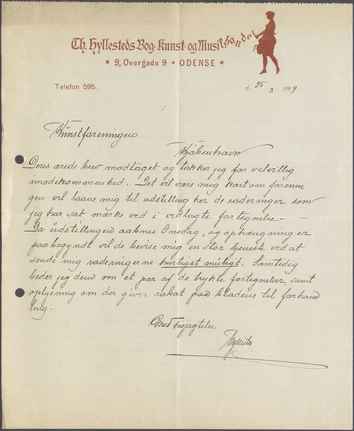 Th. Hyllesteds Bog-Kunst-og-Musikhandel
* 9, Overgade 9 * ODENSE *
Telefon 595.
d. 25/3 1919
Kunstforeningen
København
Deres ærede brev modtaget og takker jeg for velvillig
imødekommenhed. Det vil være mig kært om forenin
gen vil laane mig til udstilling her de raderinger som
jeg har sat mærke ved i vedlagte fortegnelse. –
Da udstillingen aabnes Onsdag, og ophængning er
paabegyndt vil de bevise mig en stor tjeneste ved at
sende mig raderingerne hurtigst muligt. Samtidig
beder jeg dem om et par af de trykte fortegnelser, samt
oplysning om der gives rabat paa bladene til forhand
ling.
Ærbødigst